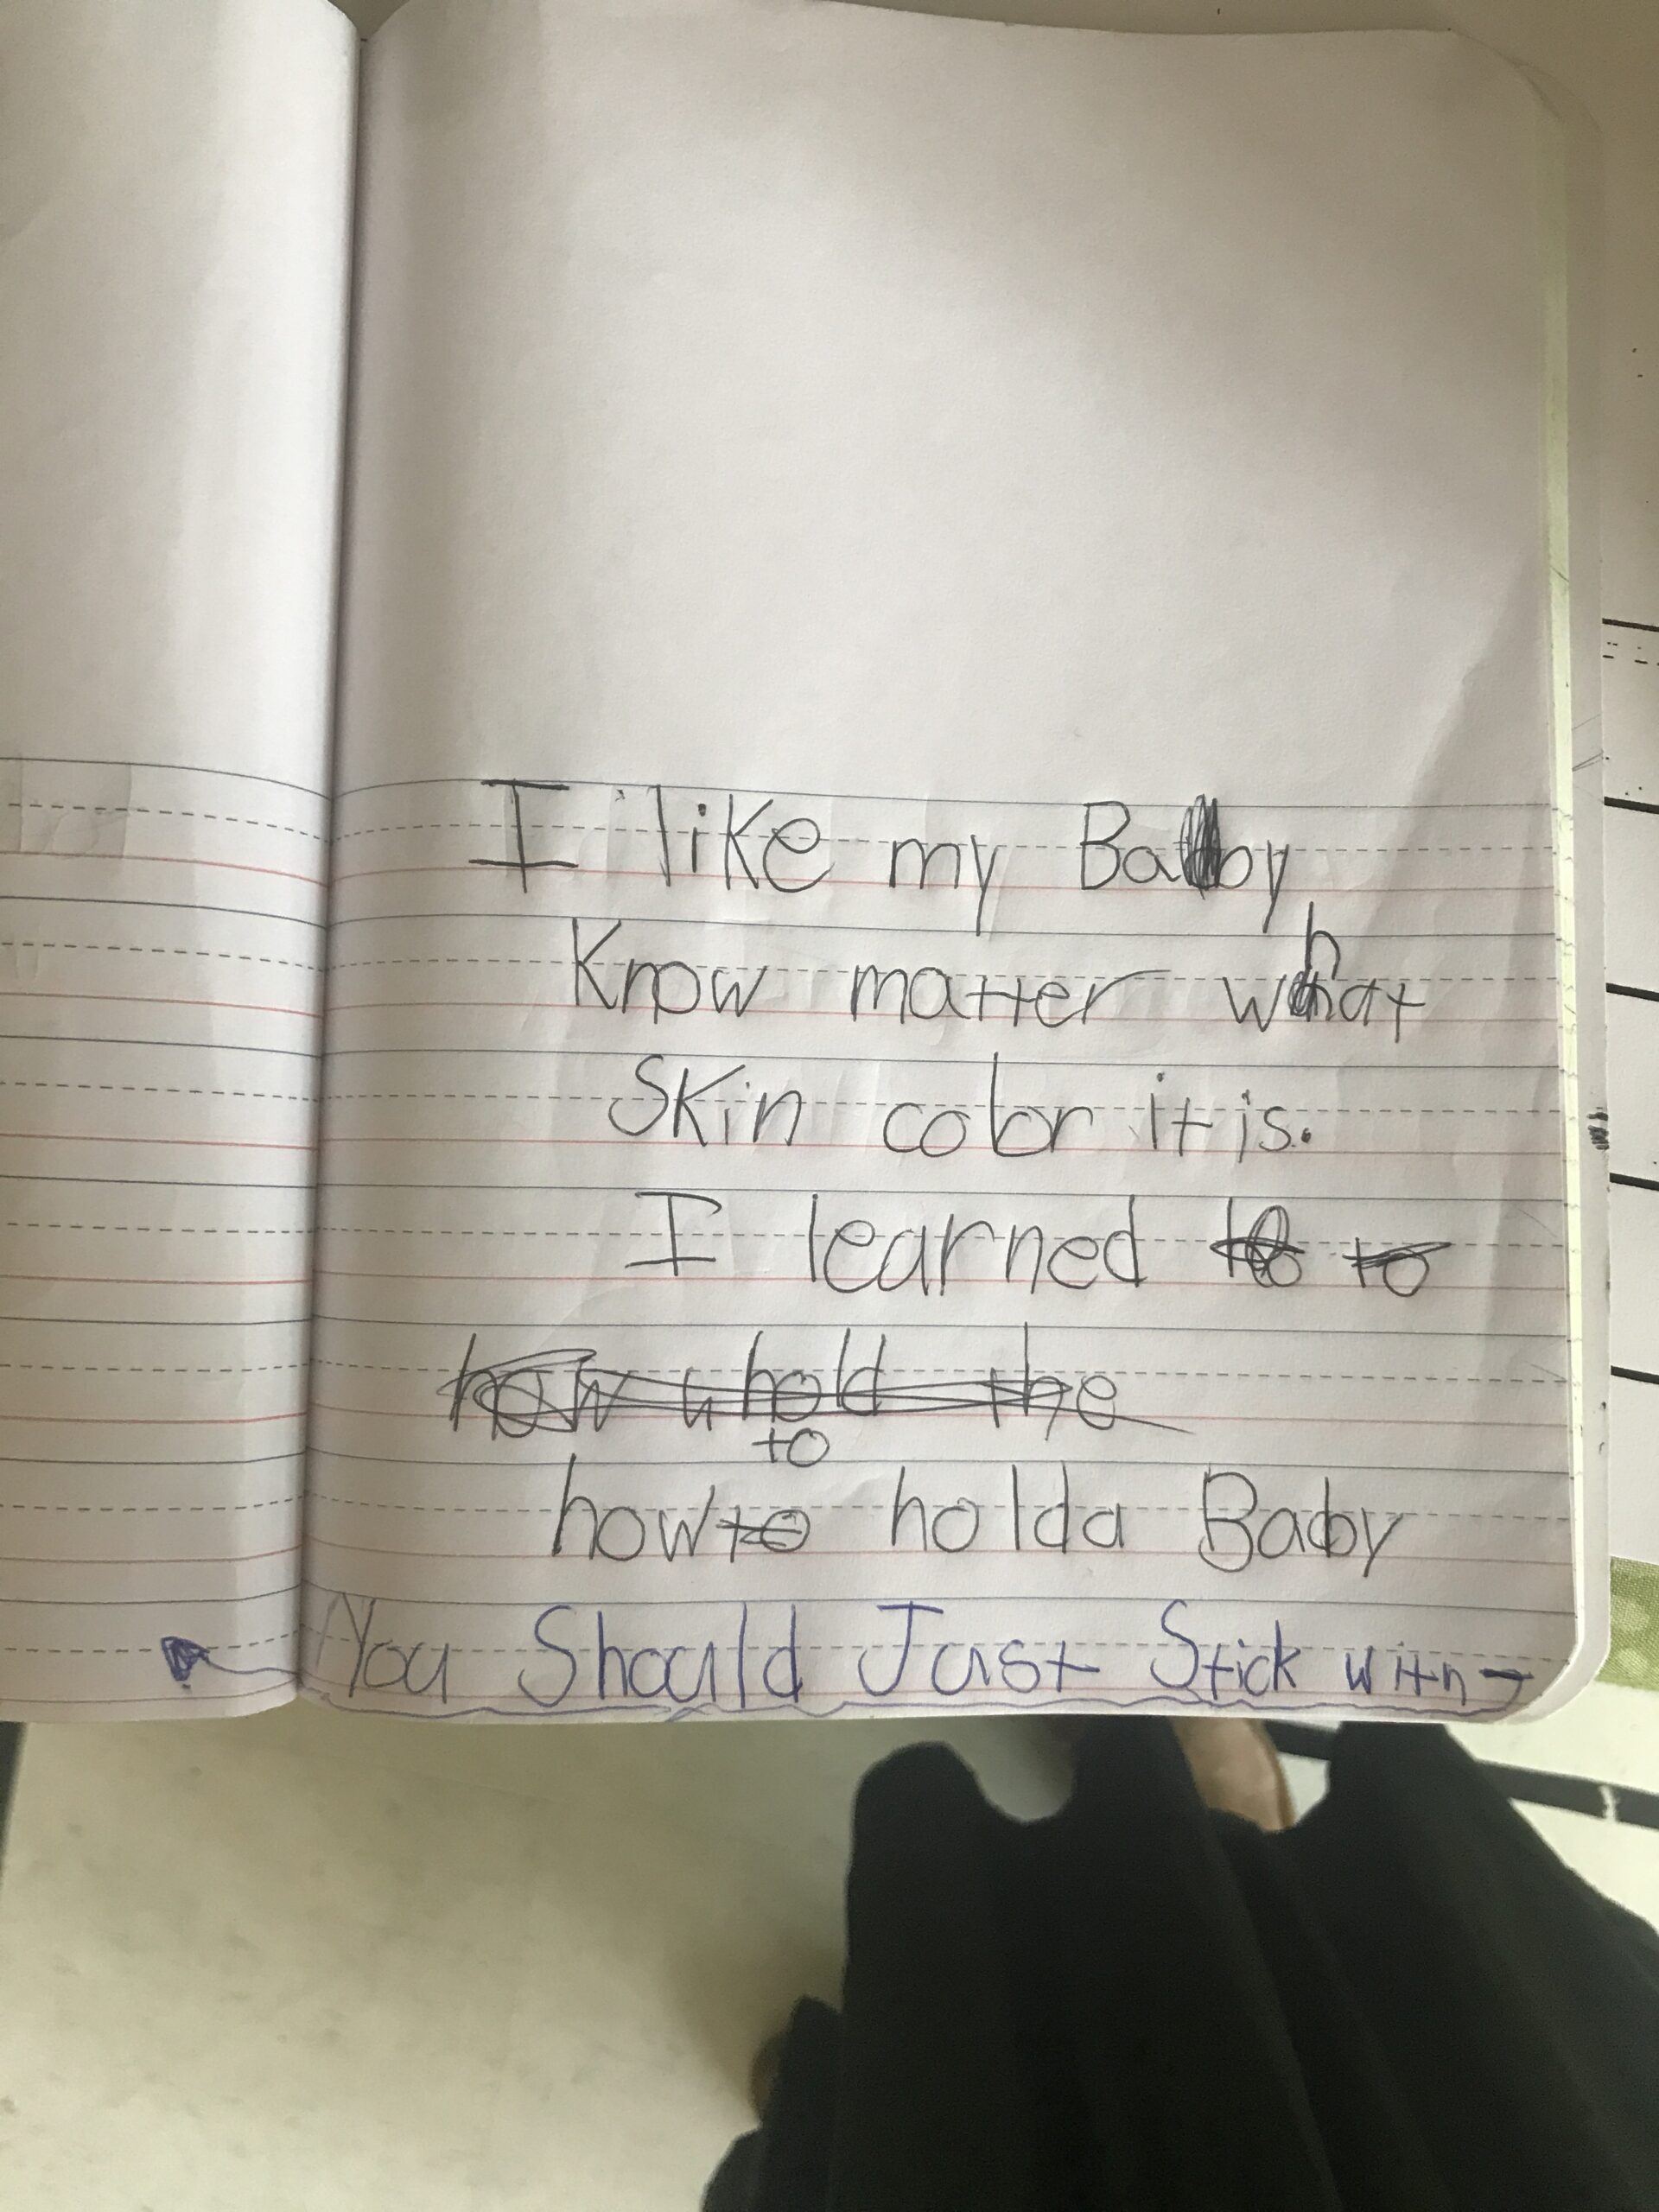 I like my Baby
Know matter what
Skin color it is.
I learned to to
how u hold the
to
how to hold a Baby
You Should Just Stick with